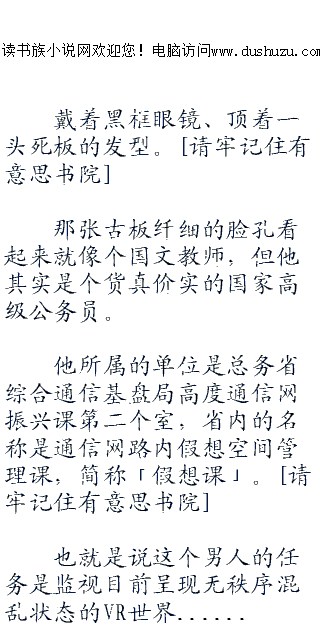 读书族小说网欢迎您！电脑访问www.dushuzu.com
戴着黑框眼镜、顶着一
头死板的发型。[请牢记住有
意思书院]
那张古板纤细的脸孔看
起来就像个国文教师，但他
其实是个货真价实的国家高
级公务员。
他所属的单位是总务省
综合通信基盘局高度通信网
振兴课第二个室，省内的名
称是通信网路内假想空间管
理课，简称「假想课」。[请
牢记住有意思书院]
也就是说这个男人的任
务是监视目前呈现无秩序混
乱状态的VR世界......